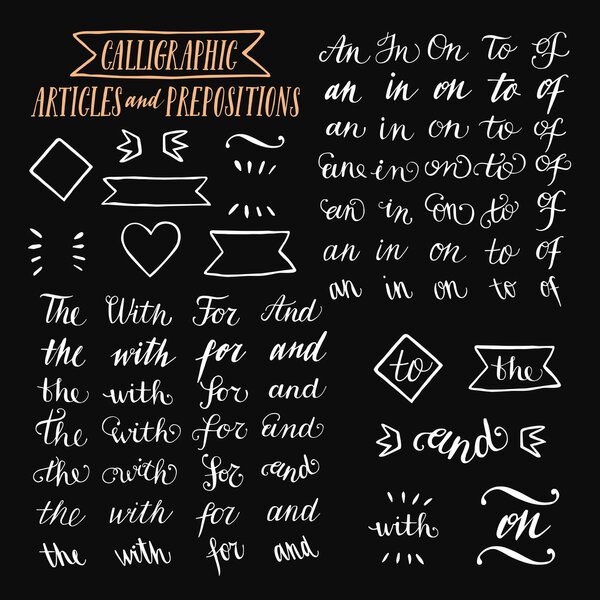 CALLIGRAPHIC
ARTICLES and PREPOSITIONS
An In On To Of
an in on to of
an in on to of
an in on to of
an in on to of
an in on to of
an in on to of
The With For And
the with for and
the with for and
the with for and
the with for and
the with for and
the with for and
to the
and
with on